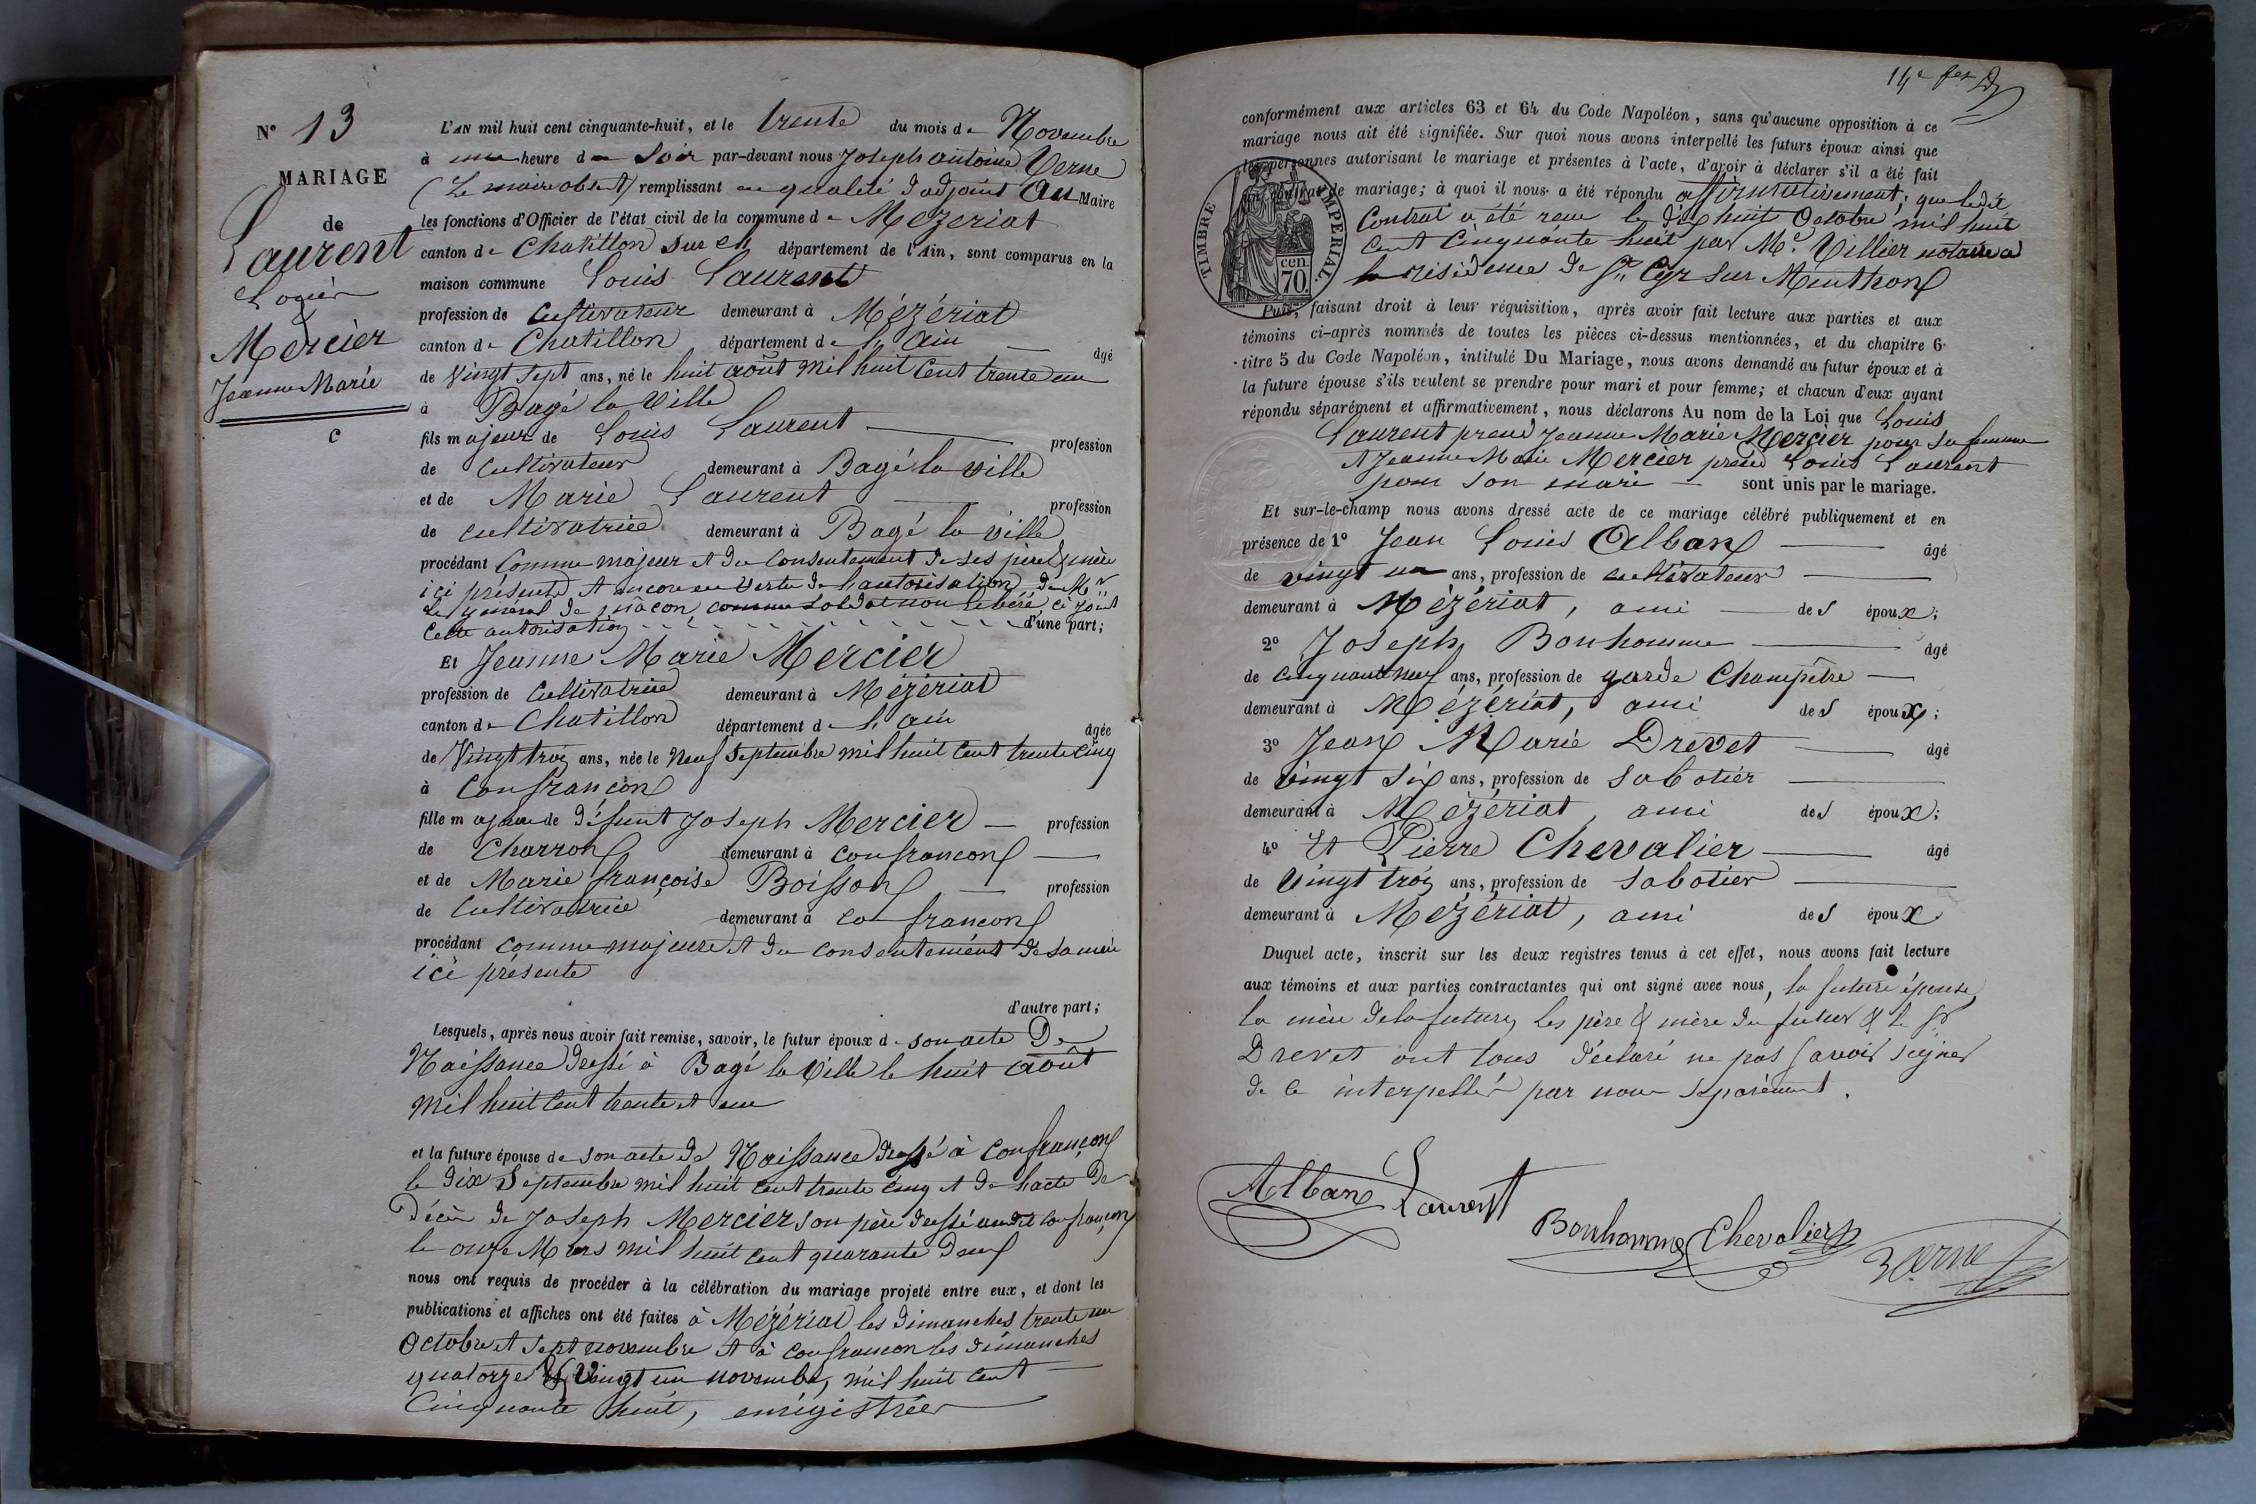 N° 13
MARIAGE
de
Laurent
Louis
&
Mercier
Jeanne Marie
C
L'AN mil huit cent cinquante-huit, et le trente du mois de Novembre
à une heure du Soir par-devant nous Joseph antoine Verne
(Le maire absent) remplissant en qualité d'adjoint au Maire
les fonctions d'Officier de l'état civil de la commune de Mézériat
canton de Chatillon sur ch département de l'Ain, sont comparus en la
maison commune Louis Laurent
profession de cultivateur demeurant à Mézériat
canton de Chatillon département de l'ain — âgé
de Vingt sept ans, né le huit août mil huit cent trente un
à Bagé la Ville
fils majeur de Louis Laurent — profession
de cultivateur demeurant à Bagé la ville
et de Marie Laurent — profession
de cultivatrice demeurant à Bagé la ville
procédant comme majeur et du consentement de ses père & mère
ici présents et encore en vertu de l'autorisation de Mr
le général de mâcon, comme soldat non libéré, ci joint
cette autorisation d'une part;
Et Jeanne Marie Mercier
profession de cultivatrice demeurant à Mézériat
canton de Chatillon département de l'ain âgée
de Vingt trois ans, née le neuf Septembre mil huit cent trente cinq
à Confrançon
fille majeure de défunt Joseph Mercier — profession
de Charron demeurant à confrancon —
et de Marie françoise Boisson — profession
de cultivatrice demeurant à confrancon
procédant comme majeure et du consentement de sa mère
ici présente
d'autre part;
Lesquels, après nous avoir fait remise, savoir, le futur époux de son acte De
Naissance dressé à Bagé la Ville le huit août
mil huit cent trente et un
et la future épouse de son acte de Naissance dressé à confrançon
le dix Septembre mil huit cent trente cinq et de l'acte De
Décès de Joseph Mercier son père dressé audit confrançon
le onze Mars mil huit cent quarante deux
nous ont requis de procéder à la célébration du mariage projeté entre eux, et dont les
publications et affiches ont été faites à Mézériat les dimanches trente un
octobre et sept novembre et à confrancon les dimanches
quatorze & vingt un novembre, mil huit cent
Cinquante huit, enrégistrées
14e
conformément aux articles 63 et 64 du Code Napoléon, sans qu'aucune opposition à ce
mariage nous ait été signifiée. Sur quoi nous avons interpellé les futurs époux ainsi que
les personnes autorisant le mariage et présentes à l'acte, d'avoir à déclarer s'il a été fait
un contrat de mariage; à quoi il nous a été répondu affirmativement; que ledit
TIMBRE IMPERIAL.
cen
70.
Contrat a été reçu le dix huit Octobre mil huit
cent cinquante huit par Me Villier notaire à
la résidence de St Cyr sur Menthon
Puis, faisant droit à leur réquisition, après avoir fait lecture aux parties et aux
témoins ci-après nommés de toutes les pièces ci-dessus mentionnées, et du chapitre 6
titre 5 du Code Napoléon, intitulé Du Mariage, nous avons demandé au futur époux et à
la future épouse s'ils veulent se prendre pour mari et pour femme; et chacun d'eux ayant
répondu séparément et affirmativement, nous déclarons Au nom de la Loi que Louis
Laurent prend Jeanne Marie Mercier pour sa femme
et Jeanne Marie Mercier prend Louis Laurent
pour son mari — sont unis par le mariage.
Et sur-le-champ nous avons dressé acte de ce mariage célébré publiquement et en
présence de 1° Jean Louis Alban — âgé
de vingt un ans, profession de cultivateur —
demeurant à Mézériat, ami — des époux;
2° Joseph Bonhomme — âgé
de cinquante neuf ans, profession de garde Champêtre —
demeurant à Mézériat, ami des époux;
3° Jean Marie Drevet — âgé
de vingt six ans, profession de sabotier —
demeurant à Mézériat, ami des époux;
4° Et Pierre Chevalier — âgé
de Vingt trois ans, profession de sabotier —
demeurant à Mézériat, ami des époux
Duquel acte, inscrit sur les deux registres tenus à cet effet, nous avons fait lecture
aux témoins et aux parties contractantes qui ont signé avec nous, la future épouse
la mère de la future, les père & mère du futur & le Sr
Drevet ont tous déclaré ne pas savoir signer
de ce interpellés par nous séparément.
Alban Laurent
Bonhomme Chevalier
Verne